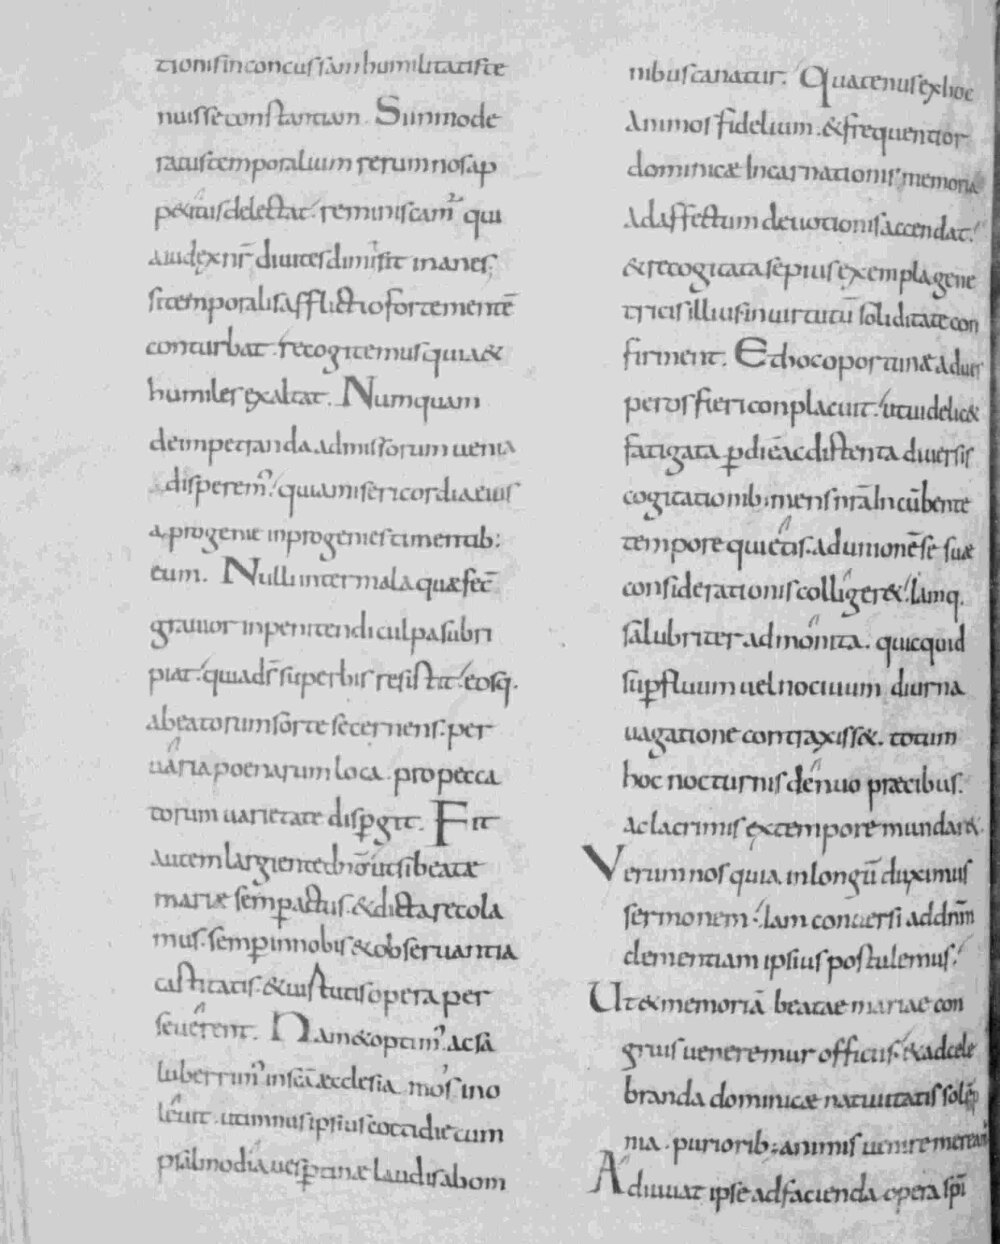 tionis inconcussam humilitatis te
nuisse constantiam. Si inmode
ratus temporalium rerum nos ap
p&itus delectat. reminiscam̃ qui
a iudex nr̃ diuites dimisit inanes.
si temporalis afflictio forte mentẽ
conturbat. recogitemus quia &
humiles exaltat. Numquam
de impetranda admissorum uenia
disperem. quia misericordia eius
a progenie in progenies timentib:
eum. Nulli inter mala quae fec̃
grauior inpenitendi culpa subri
piat. quia dς̃ superbis resistit. eosq.
a beatorum sorte secernens. per
uaria poenarum loca. pro pecca
torum uarietate dispgit. Fit
autem largiente dn̄o ut si beatæ
mariæ semp actus. & dicta recola
mus. semp in nobis & obseruantia
castitatis. & uirtutis opera per
seuerent. Nam & optim̃. ac sa
luberrim̃ in sc̄a æcclesia mos ino
leuit. ut imnus ipsius cottidie cum
psalmodia uesptinæ laudis ab om
nibus canatur. Quatenus ex hoc
Animos fidelium. & frequentior
dominicæ Incarnationis memoria
Ad affectum deuotionis accendat.
& recogitata sepius exempla gene
tricis illius in uirtutū soliditate con
firment. Et hoc oportunæ ad ues
peros fieri conplacuit. ut uidelic&
fatigata p diē ac distenta diuersis
cogitationib: mens nr̄a Incūbente
tempore quietis. ad unionē se suæ
considerationis colliger&. Iamq.
salubriter admonita. quicquid
supfluum uel nociuum diurna
uagatione contraxiss&. totum
hoc nocturnis denuo præcibus.
ac lacrimis ex tempore mundar&.
Verum nos quia in longū duximus
sermonem. Iam conuersi ad dnm̄
clementiam ipsius postulemus.
Ut & memoriā beatae mariae con
gruis ueneremur officiis. & ad cele
branda dominicæ natiuitatis solēp
nia. puriorib: animis uenire mereamur
Adiuuat ipse ad facienda opera spī